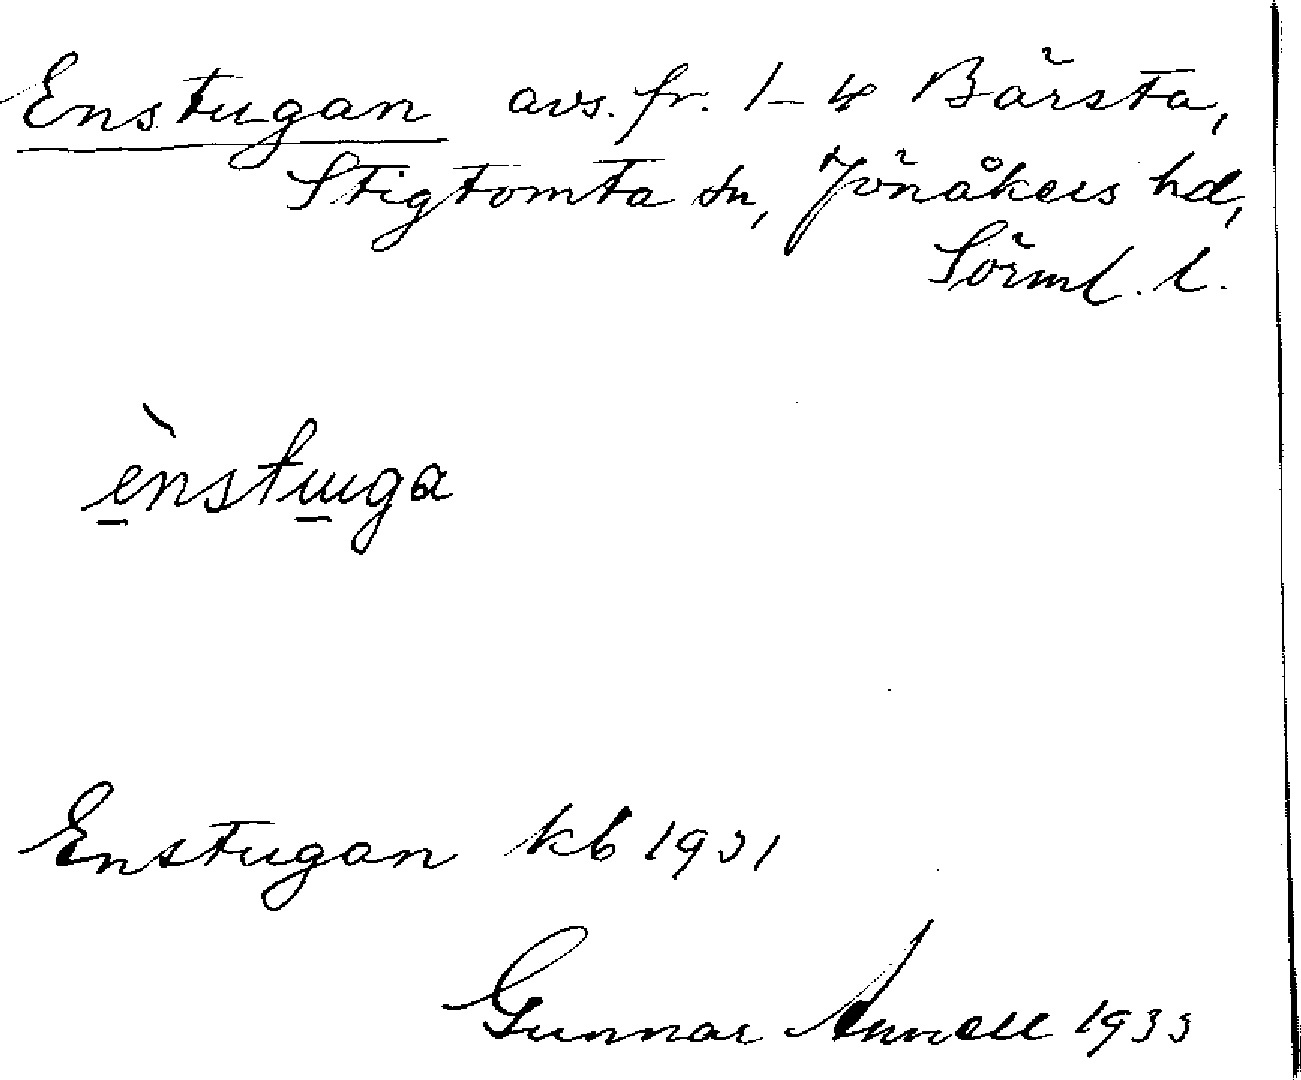 Enstugan avs. fr. 1-4 Bärsta,
Stigtomta sn, Jönåkers hd,
Sörml. l.
ènstuga
Enstugan kb 1931
Gunnar Annell 1933